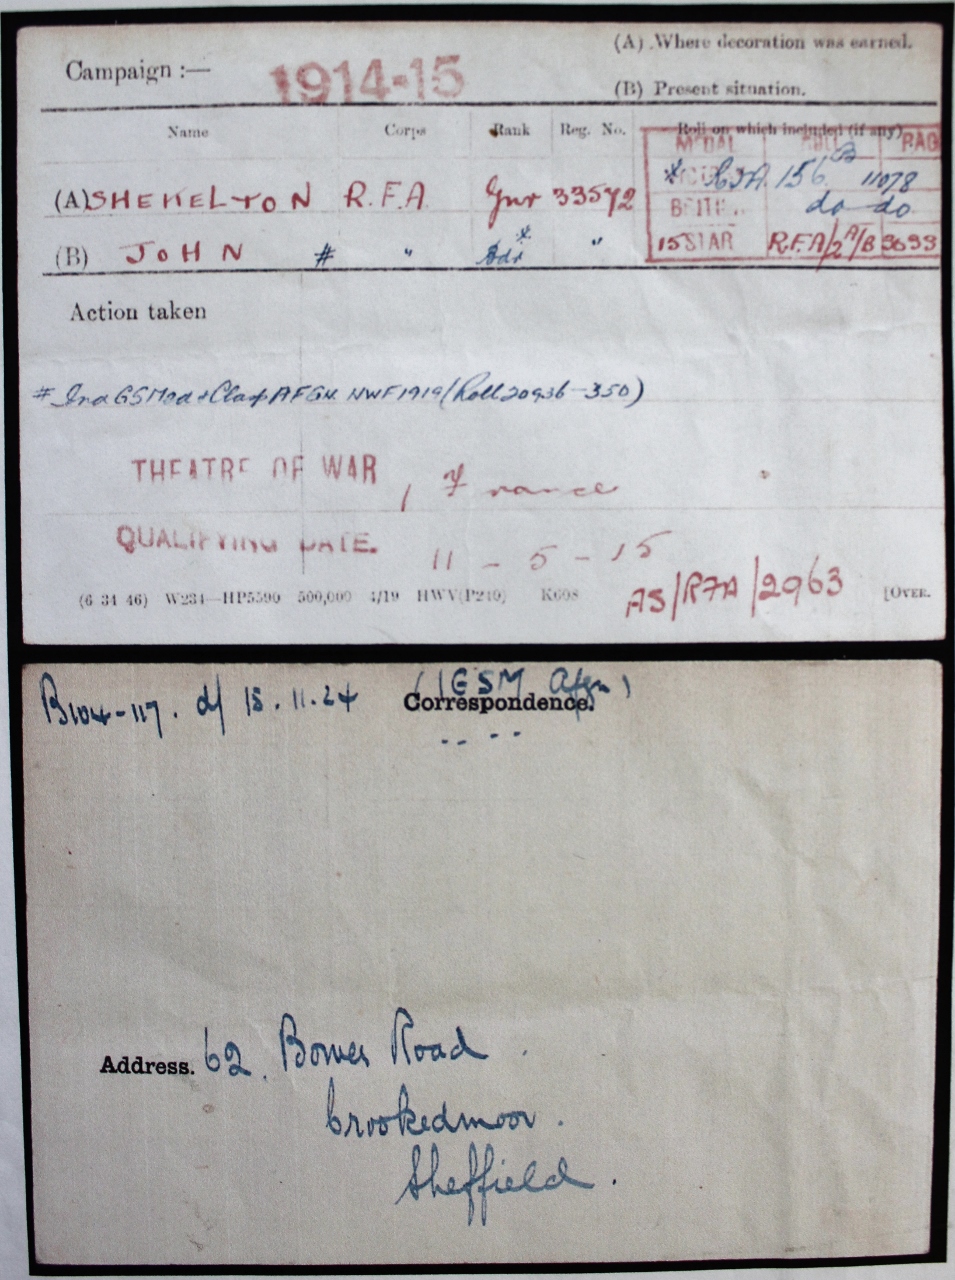 (A) Where decoration was earned.
Campaign :— 1914-15
(B) Present situation.
Name Corps Rank Reg. No. Roll on which included (if any)
MEDAL ROLL PAGE
(A) SHEKELTON R.F.A. Gnr 33572 * VICTORY R.F.A. 156 B 11078
BRITISH do do
(B) JOHN # " Bdr * " 15 STAR R.F.A/2A/B 3693
Action taken
# Ind GS Med & Clasp AFGN NWF 1919 (Roll 20936-350)
THEATRE OF WAR 1 France
QUALIFYING DATE. 11 - 5 - 15
(6 34 46) W234—HP5590 500,000 4/19 HWV(P240) K608 AS/RFA/2963 [OVER.
B104-117. d/ 18.11.24 (IGSM Afgn)
Correspondence.
Address. 62. Bower Road
Crookedmoor.
Sheffield.